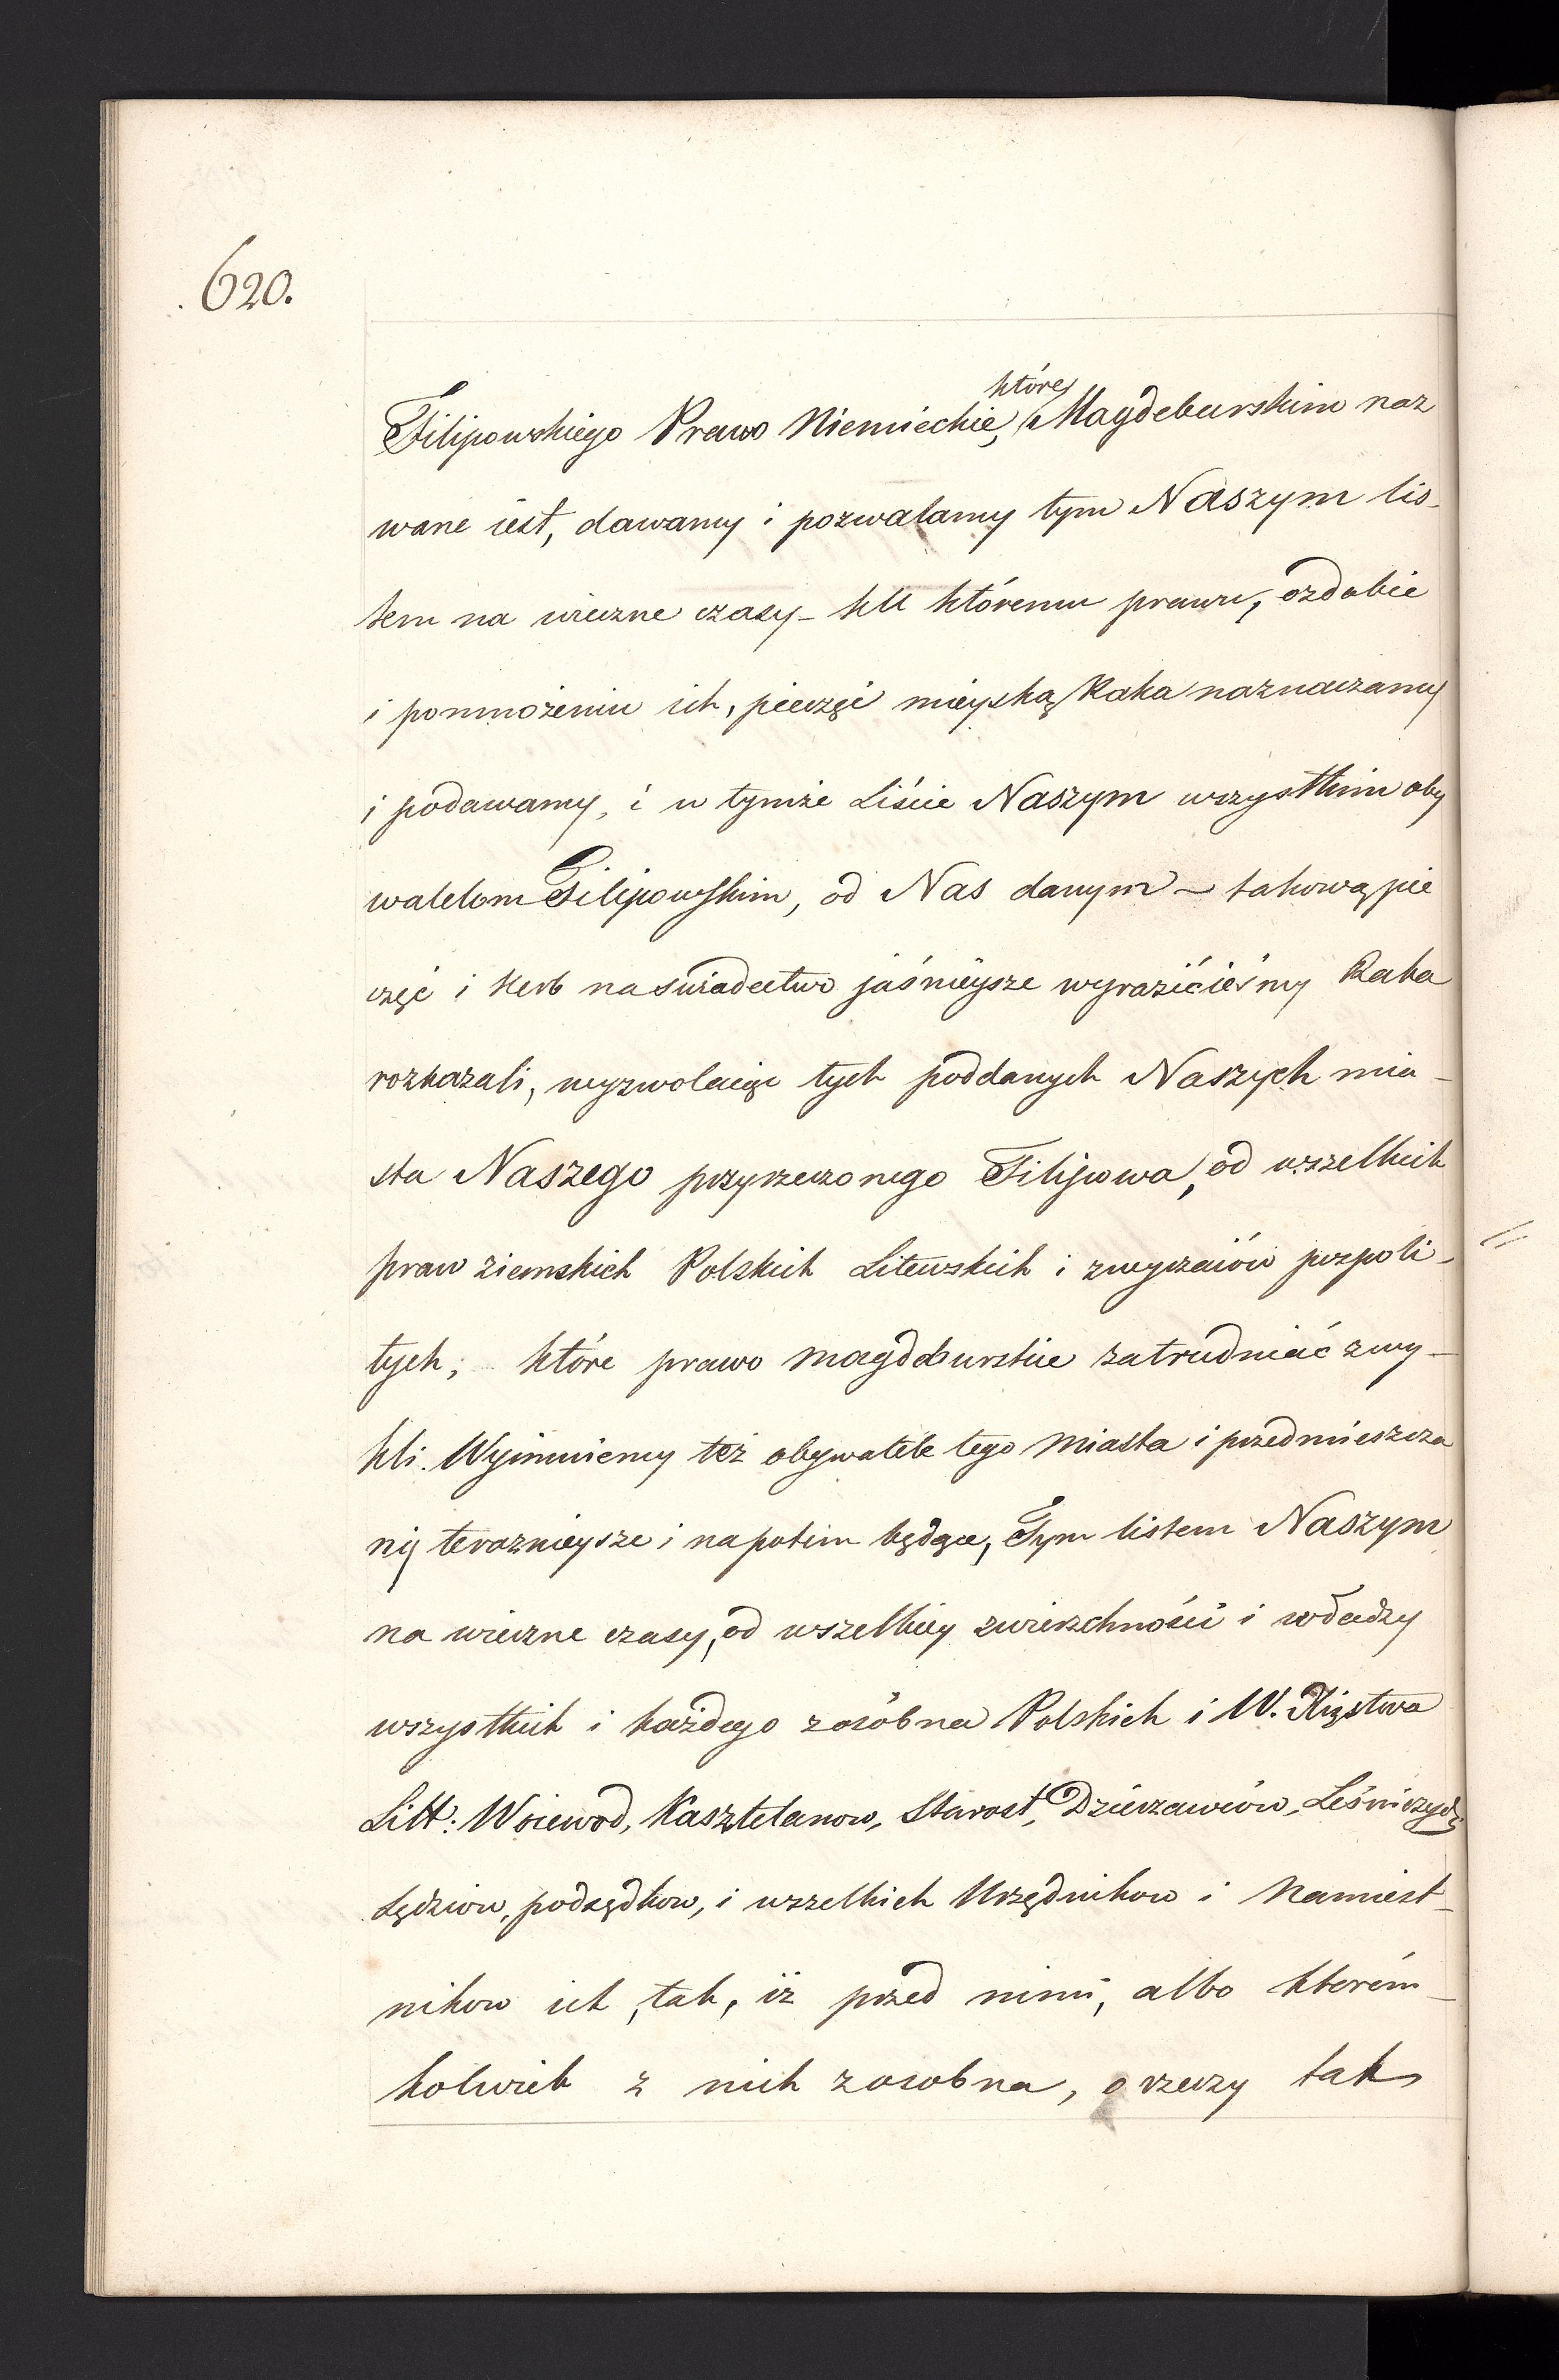 620.
które
Filipowskiego Prawo Niemieckie, Magdeburskim naz
wane iest, dawamy i pozwalamy tym Naszym lis-
tem na wieczne czasy - ku któremu prawu, ozdobie
i pomnożeniu ich, pieczęć mieyską Raka naznaczamy
i podawamy, i w tymże Liście Naszym wszystkim oby
watelom Filipowskim, od Nas danym - takową pie
częć i Herb na świadectwo jaśnieysze wyrazićieśmy Raka
rozkazali, wyzwolaiąc tych poddanych Naszych mia-
sta Naszego przyrzeczonego Filipowa, od wszelkich
praw ziemskich Polskich Litewskich i zwyczaiów pospoli-
tych, które prawo magdeburskie zatrudniać zwy-
kli. Wyimuiemy też obywatele tego Miasta i przedmieszcza
ny teraznieysze i napotim będące, Tym listem Naszym
na wieczne czasy, od wszelkiey zwierzchności i władzy
wszystkich i każdego zosóbna Polskich i W. Xięstwa
Litt: Woiewod, Kasztelanow, Starost, Dzierżawców, Leśniczych,
Sędziow, podsędkow, i wszelkich Urzędnikow i Namiest-
nikow ich, tak, iż przed nimi, albo którém-
kolwiek z nich zosobna, o rzeczy tak